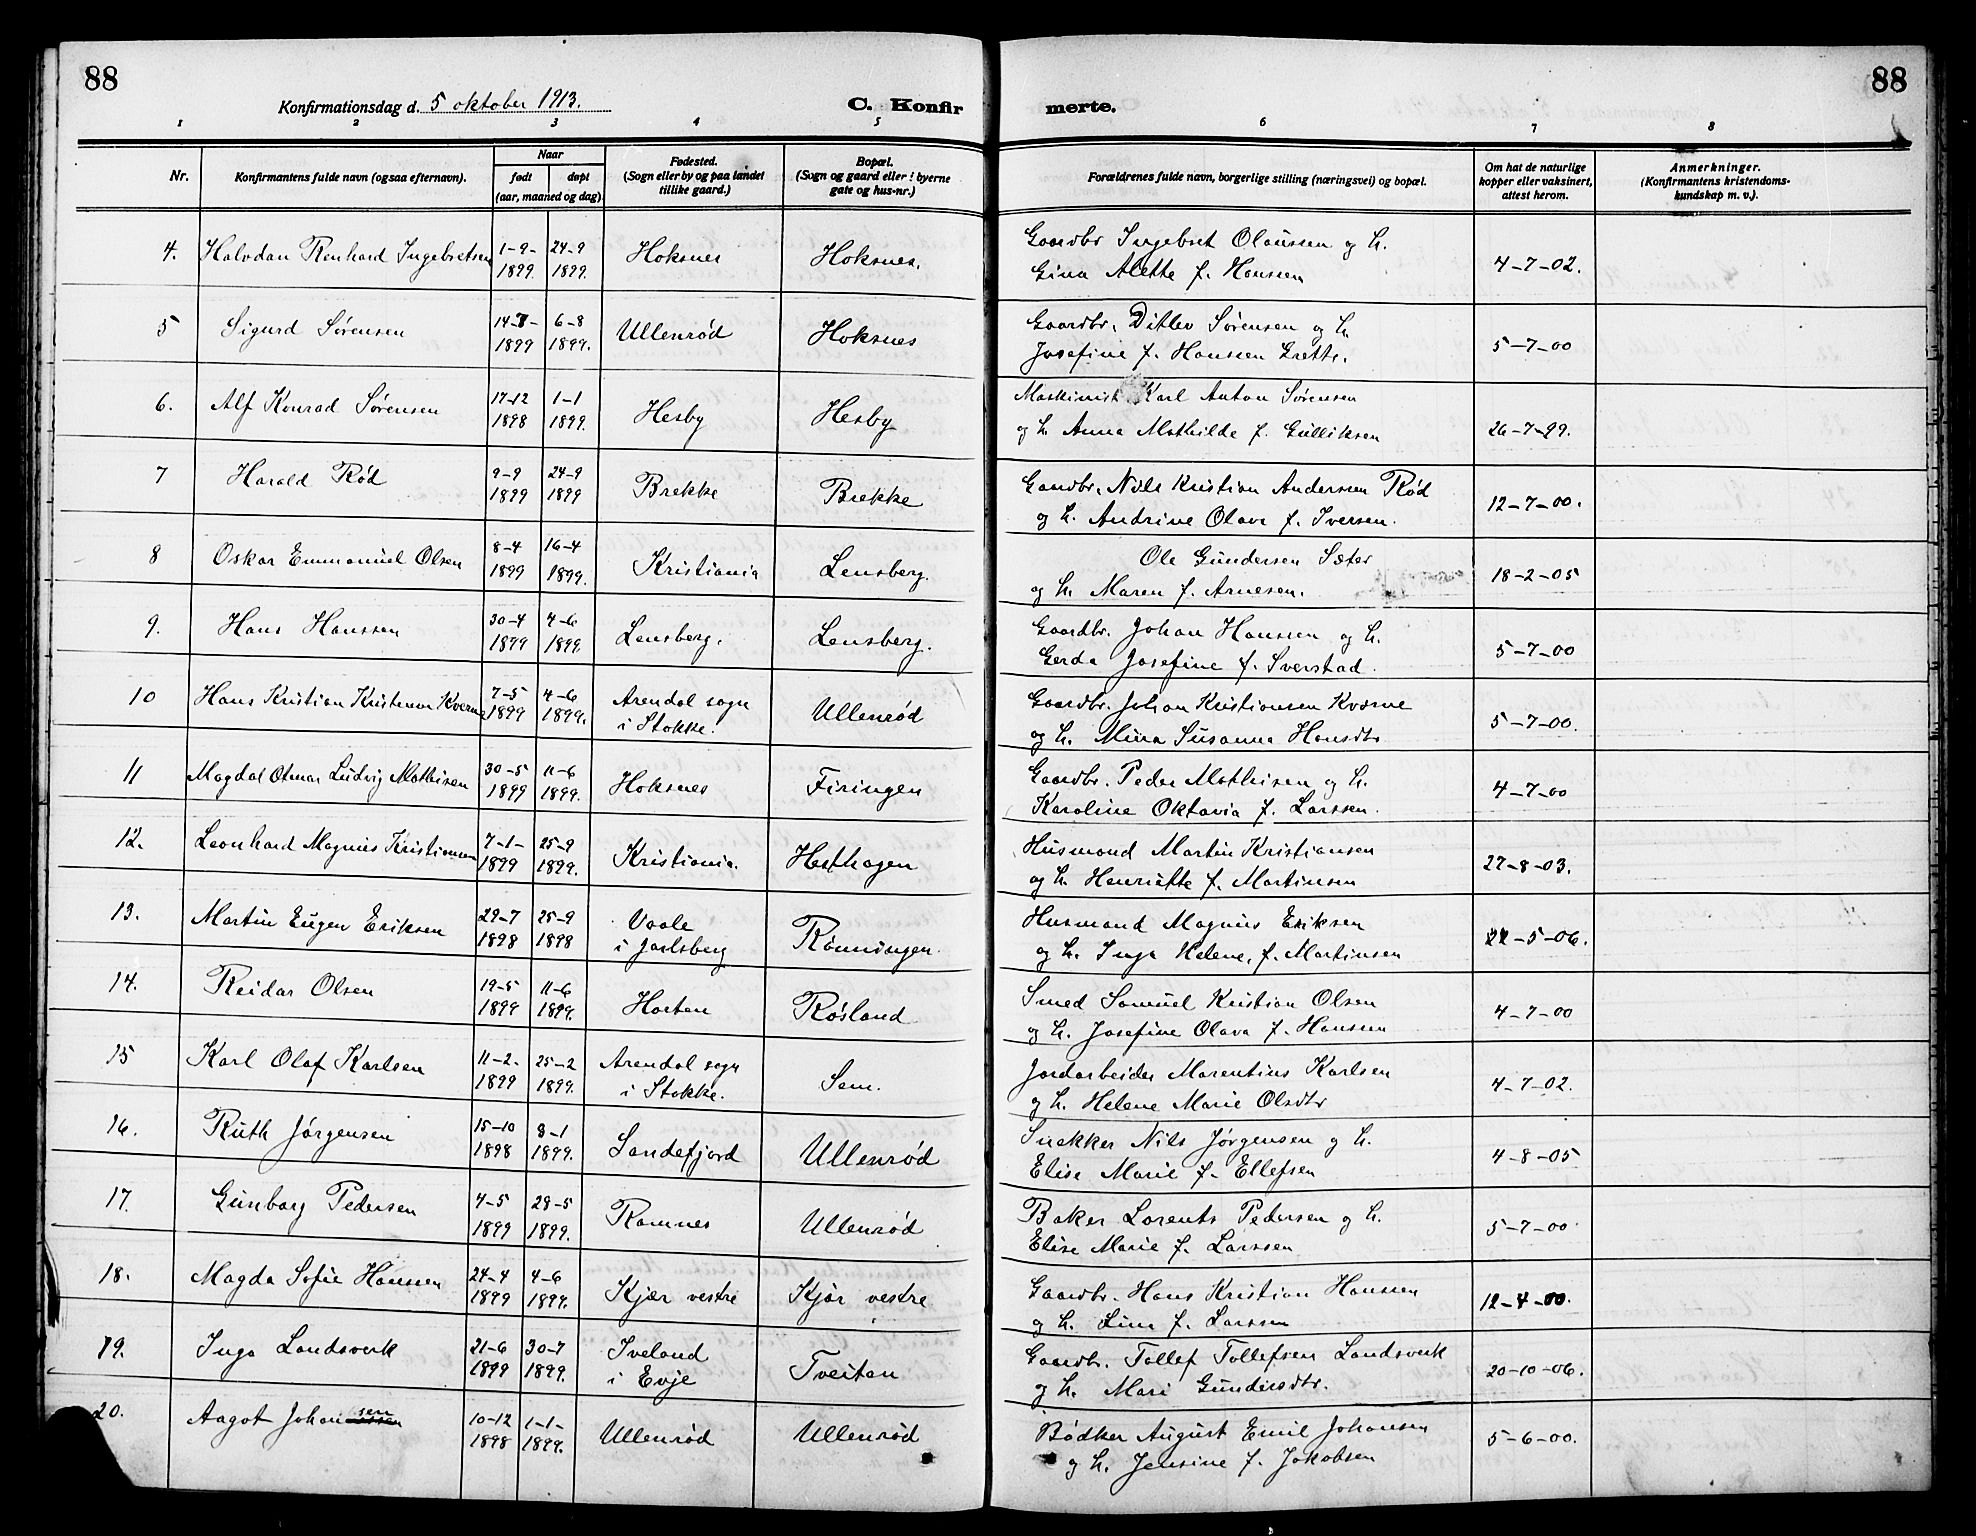 88
88
Konfirmationsdag d. 5 oktober 1913.
C. Konfir
merte.
1 2 3 4 5 6 7 8
Nr.
Konfirmantens fulde navn (ogsaa efternavn).
Naar
født
døpt
(aar, maaned og dag)
Fødested.
(Sogn eller by og paa landet
tillike gaard.)
Bopæl.
(Sogn og gaard eller i byerne
gate og hus-nr.)
Forældrenes fulde navn, borgerlige stilling (næringsvei) og bopæl.
Om hat de naturlige
kopper eller vaksinert,
attest herom.
Anmerkninger.
(Konfirmantens kristendoms-
kundskap m. v.).
4. Halvdan Renhard Ingebretsen 1-9- 24-9 Hoksnes Hoksnes. Gaardbr Ingebret Olaussen og h.
1899 1899. Gina Alette f. Hanssen 4-7-02.
5 Sigurd Sørensen 14-7- 6-8 Ullenrød Hoksnes Gaardbr. Ditlev Sørensen og h.
1899 1899. Josefine f. Hanssen Grette. 5-7-00
6. Alf Konrad Sørensen 17-12 1-1 Hesby Hesby Maskinist Karl Anton Sørensen
1898 1899. og h. Anna Mathilde f. Gulliksen 26-7-99.
7 Harald Rød 9-9 24-9 Brekke Brekke Gaardbr. Nils Kristian Anderssen Rød
1899 1899 og h. Andrine Olava f. Iversen. 12-7-00.
8 Oskar Emmanuel Olsen 8-4 16-4 Kristiania Lensberg. Ole Gundersen Sæter
1899 1899. og h. Maren f. Arnesen. 18-2-05
9. Hans Hanssen 30-4 4-6 Lensberg. Lensberg. Gaardbr. Johan Hanssen og h.
1899 1899. Gerda Josefine f. Sverstad. 5-7-00
10 Hans Kristian Kristensen Kverne 7-5 4-6 Arendal sogn Ullenrød Gaardbr. Johan Kristiansen Kværne
1899 1899. i Stokke. og h. Mina Susanna Hansdtr 5-7-00.
11 Magdal Otmar Ludvig Mathisen 30-5 11-6 Hoksnes Firingen Gaardbr. Peder Mathisen og h.
1899 1899. Karoline Oktavia f. Larssen. 4-7-00
12. Leonhard Magnus Kristiansen 7-1- 25-9 Kristiania. Hesthagen Husmand Martin Kristiansen
1899 1899. og h. Henriette f. Martinsen 27-8-03.
13. Martin Eugen Eriksen 29-7 25-9 Vaale Rønningen. Husmand Magnus Eriksen
1898 1898 i Jarlsberg og h. Inga Helene, f. Martinsen 22-5-06.
14. Reidar Olsen 19-5 11-6 Horten Røsland Smed Samuel Kristian Olsen
1899 1899. og h. Josefine Olava f. Hanssen 4-7-00
15 Karl Olaf Karlsen 11-2. 25-2 Arendal sogn Sem. Jordarbeider Marentius Karlsen
1899 1899. i Stokke. og h. Helene Marie Olsdtr 4-7-02.
16. Ruth Jørgensen 15-10 8-1 Sandefjord Ullenrød Snekker Nils Jørgensen og h.
1898 1899. Elise Marie f. Ellefsen 4-8-05
17. Gunborg Pedersen 4-5 28-5 Ramnes Ullenrød Baker Lorents Pedersen og h.
1899 1899. Elise Marie f. Larssen 5-7-00
18. Magda Sofie Hanssen 24-4 4-6 Kjær vestre Kjær vestre Gaardbr. Hans Kristian Hanssen
1899 1899. og h. Lina f. Larssen 12-4-00.
19. Inga Landsverk 21-6 30-7 Iveland Tveitan Gaardbr. Tollef Tollefsen Landsverk
1899 1899. i Evje og h. Mari Gundersdtr. 20-10-06.
20. Aagot Johansen 10-12 1-1- Ullenrød Ullenrød Bødker August Emil Johansen
1898 1899. og h. Jensine f. Jakobsen 5-6-00.